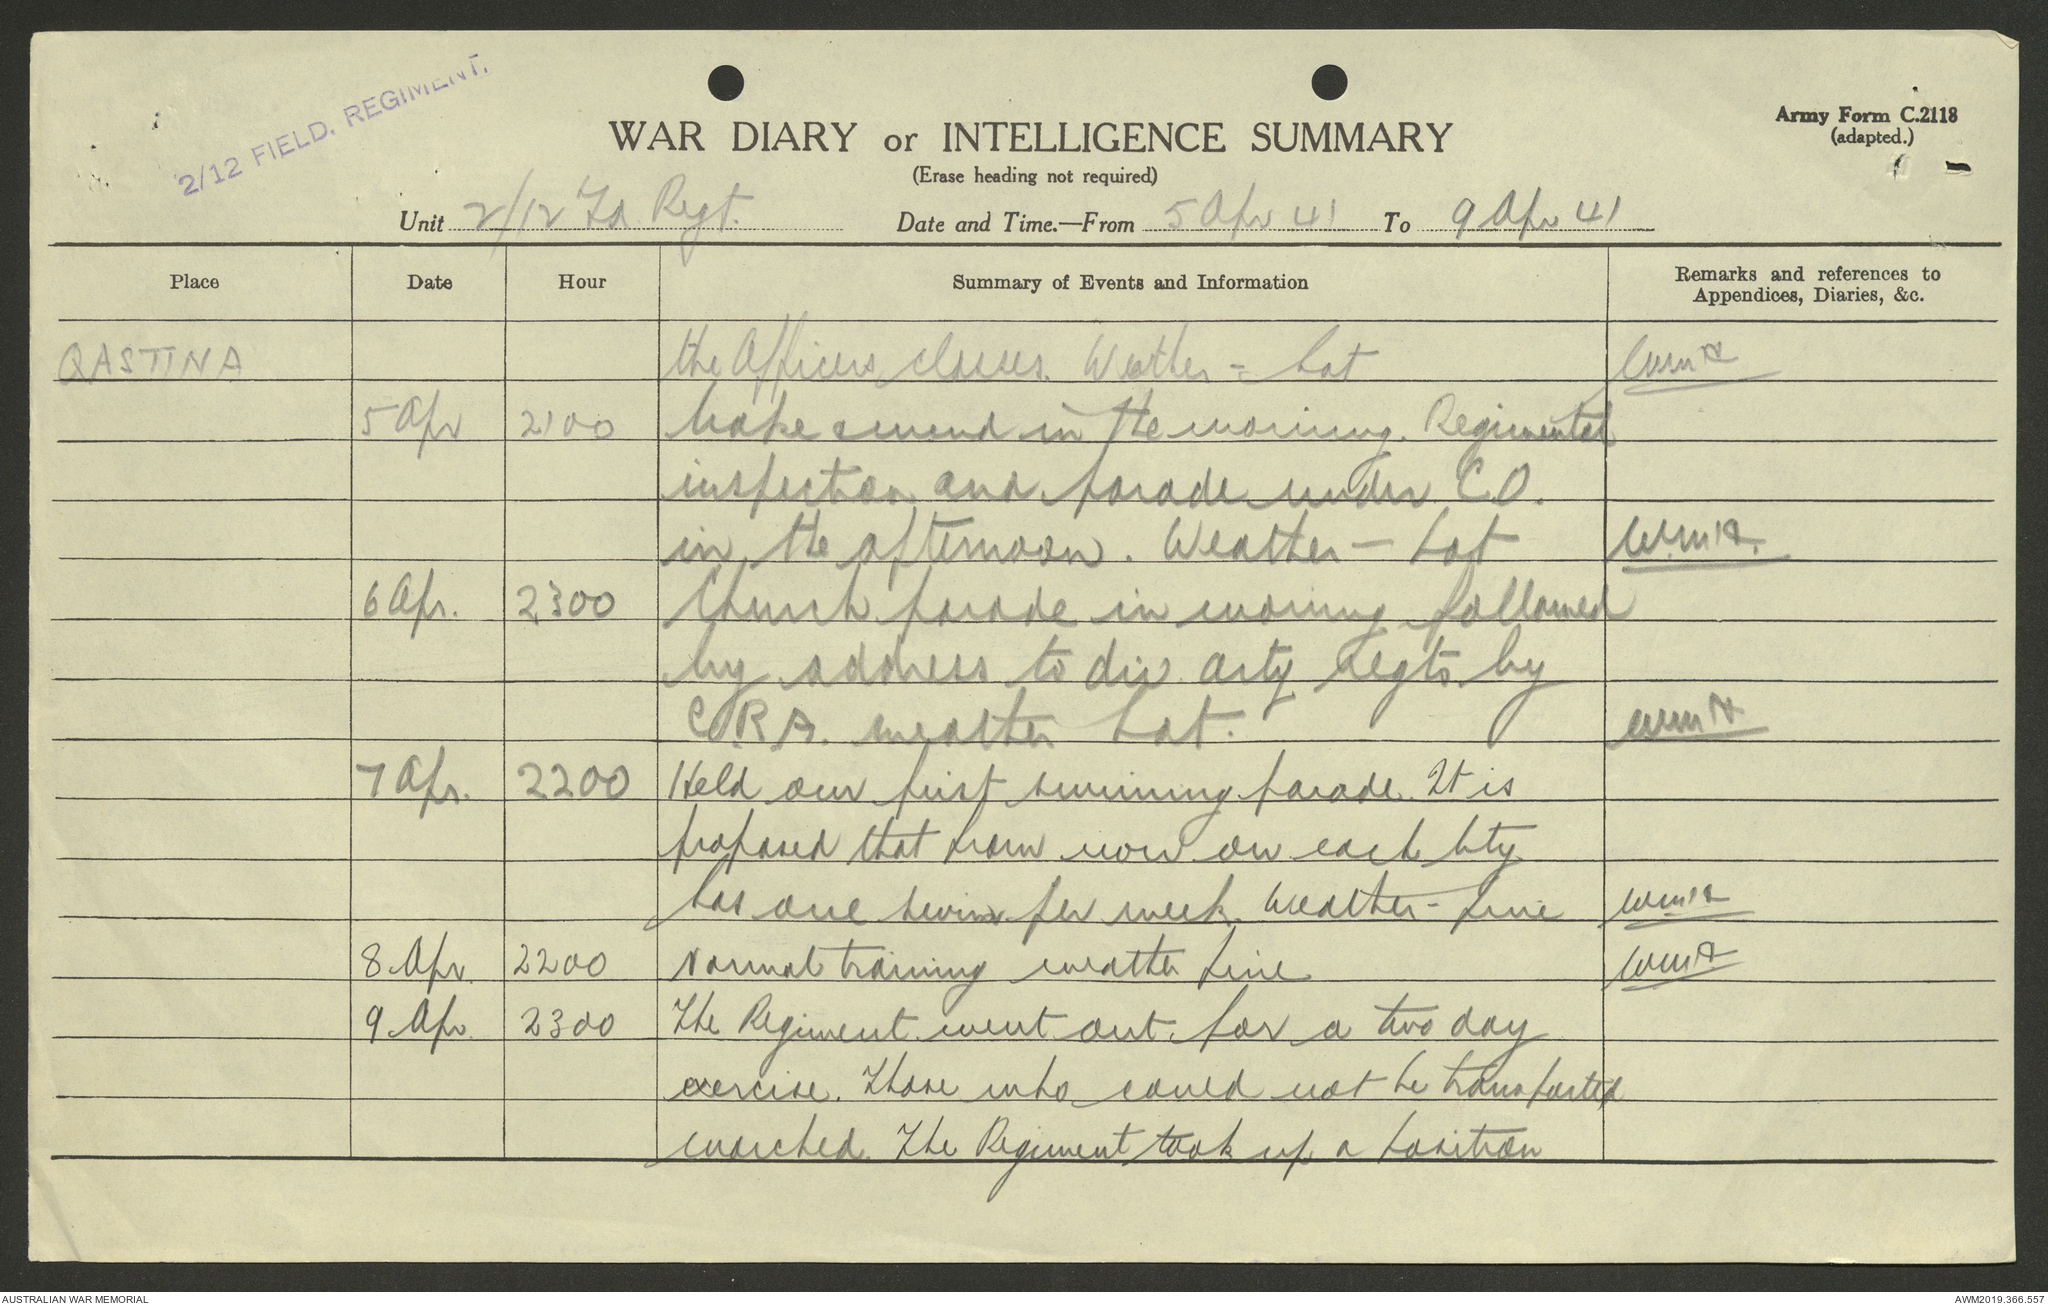 2/12 FIELD. REGIMENT.
WAR DIARY or INTELLIGENCE SUMMARY
(Erase heading not required)
Army Form C.2118
(adapted.)
Unit 2/12 Fd Regt. Date and Time.—From 5 Apr 41 To 9 Apr 41
Place Date Hour Summary of Events and Information Remarks and references to
Appendices, Diaries, &c.
QASTINA the Officers classes. Weather = hot
5 Apr 2100 in the morning. Regimental
inspection and parade under C.O.
in the afternoon. Weather — hot
6 Apr. 2300 Church parade in morning followed
by address to div. arty regts by
C.R.A. weather hot.
7 Apr. 2200 Held our first swimming parade. It is
proposed that from now on each bty
has one swim per week. Weather - fine
8 Apr 2200 Normal training weather fine
9 Apr. 2300 The Regiment went out for a two day
exercise. Those who could not be transported
marched. The Regiment took up a position
AUSTRALIAN WAR MEMORIAL
AWM2019.366.557